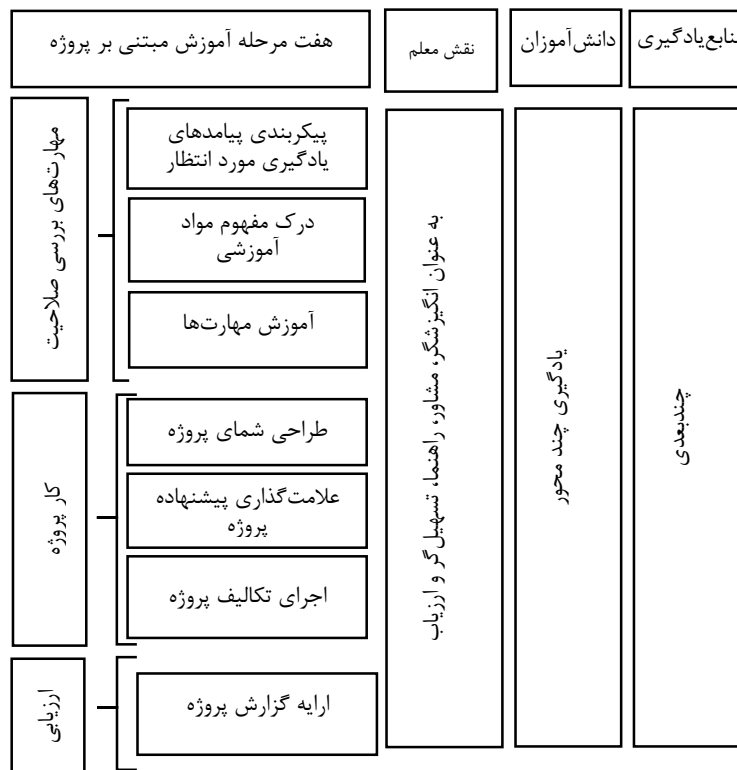 هفت مرحله آموزش مبتنی بر پروژه
نقش معلم
دانش‌آموزان
منابع‌یادگیری
مهارت‌های بررسی صلاحیت
پیکربندی پیامدهای
یادگیری مورد انتظار
درک مفهوم مواد
آموزشی
آموزش مهارت‌ها
کار پروژه
طراحی شمای پروژه
علامت‌گذاری پیشنهاده
پروژه
اجرای تکالیف پروژه
ارزیابی
ارایه گزارش پروژه
به عنوان انگیزشگر، مشاور، راهنما، تسهیل‌گر و ارزیاب
یادگیری چند محور
چندبعدی